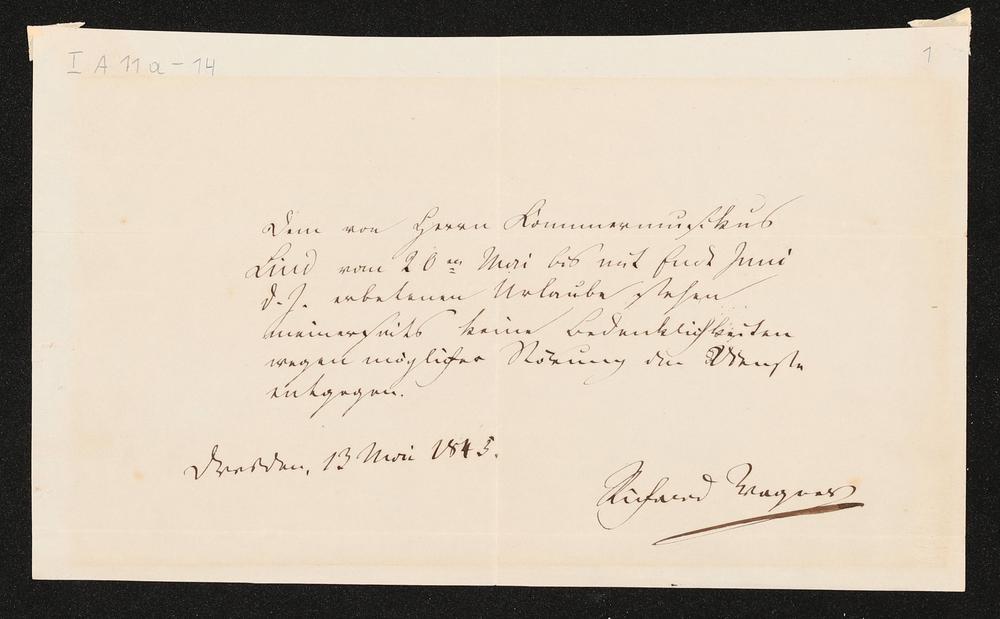 I A 11a-14
1
Dem von Herrn Kammermusikus
Lind vom 20ten Mai bis mit Ende Juni
d. J. erbetenen Urlaube stehen
meinerseits keine Bedenklichkeiten
wegen möglicher Störung im Dienste
entgegen.
Dresden, 13 Mai 1845.
Richard Wagner